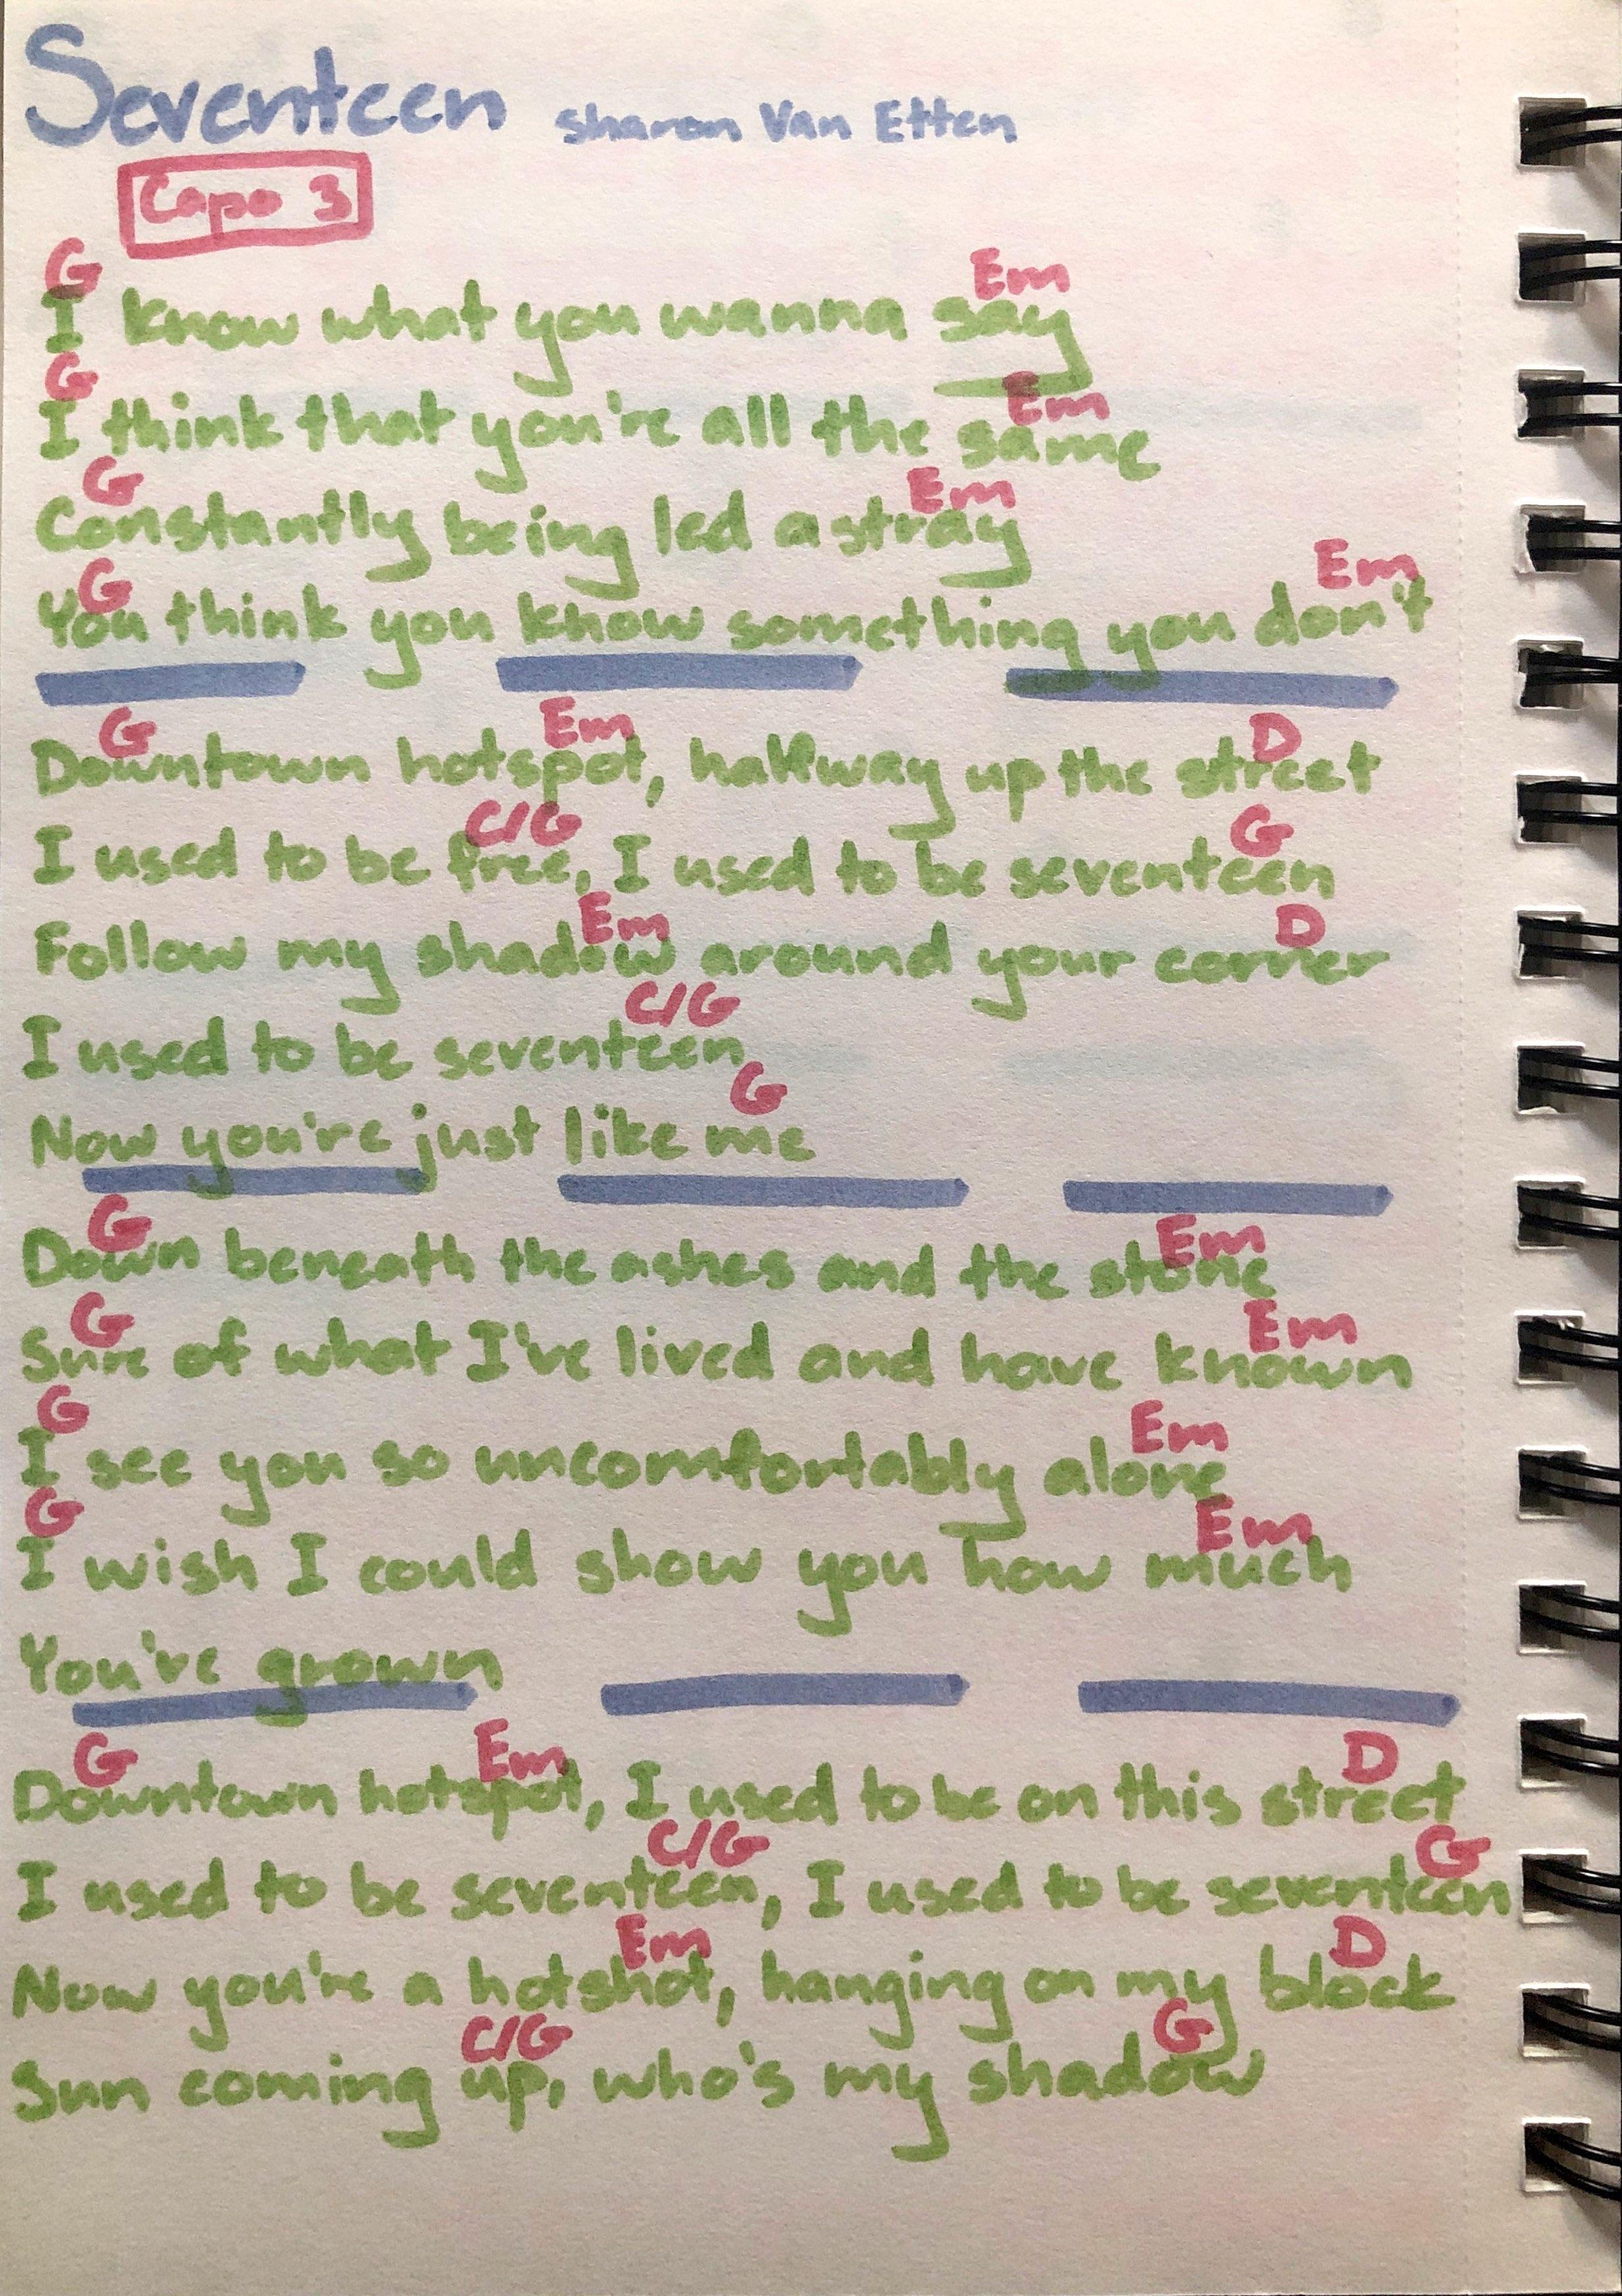 Seventeen Sharon Van Etten
Capo 3
G Em
I know what you wanna say
G Em
I think that you're all the same
G Em
Constantly being led astray
G Em
You think you know something you don't
G Em D
Downtown hotspot, halfway up the street
C/G G
I used to be free, I used to be seventeen
Em D
Follow my shadow around your corner
C/G
I used to be seventeen
G
Now you're just like me
G Em
Down beneath the ashes and the stone
G Em
Sure of what I've lived and have known
G Em
I see you so uncomfortably alone
G Em
I wish I could show you how much
You've grown
G Em D
Downtown hotspot, I used to be on this street
C/G G
I used to be seventeen, I used to be seventeen
Em D
Now you're a hotshot, hanging on my block
C/G G
Sun coming up, who's my shadow